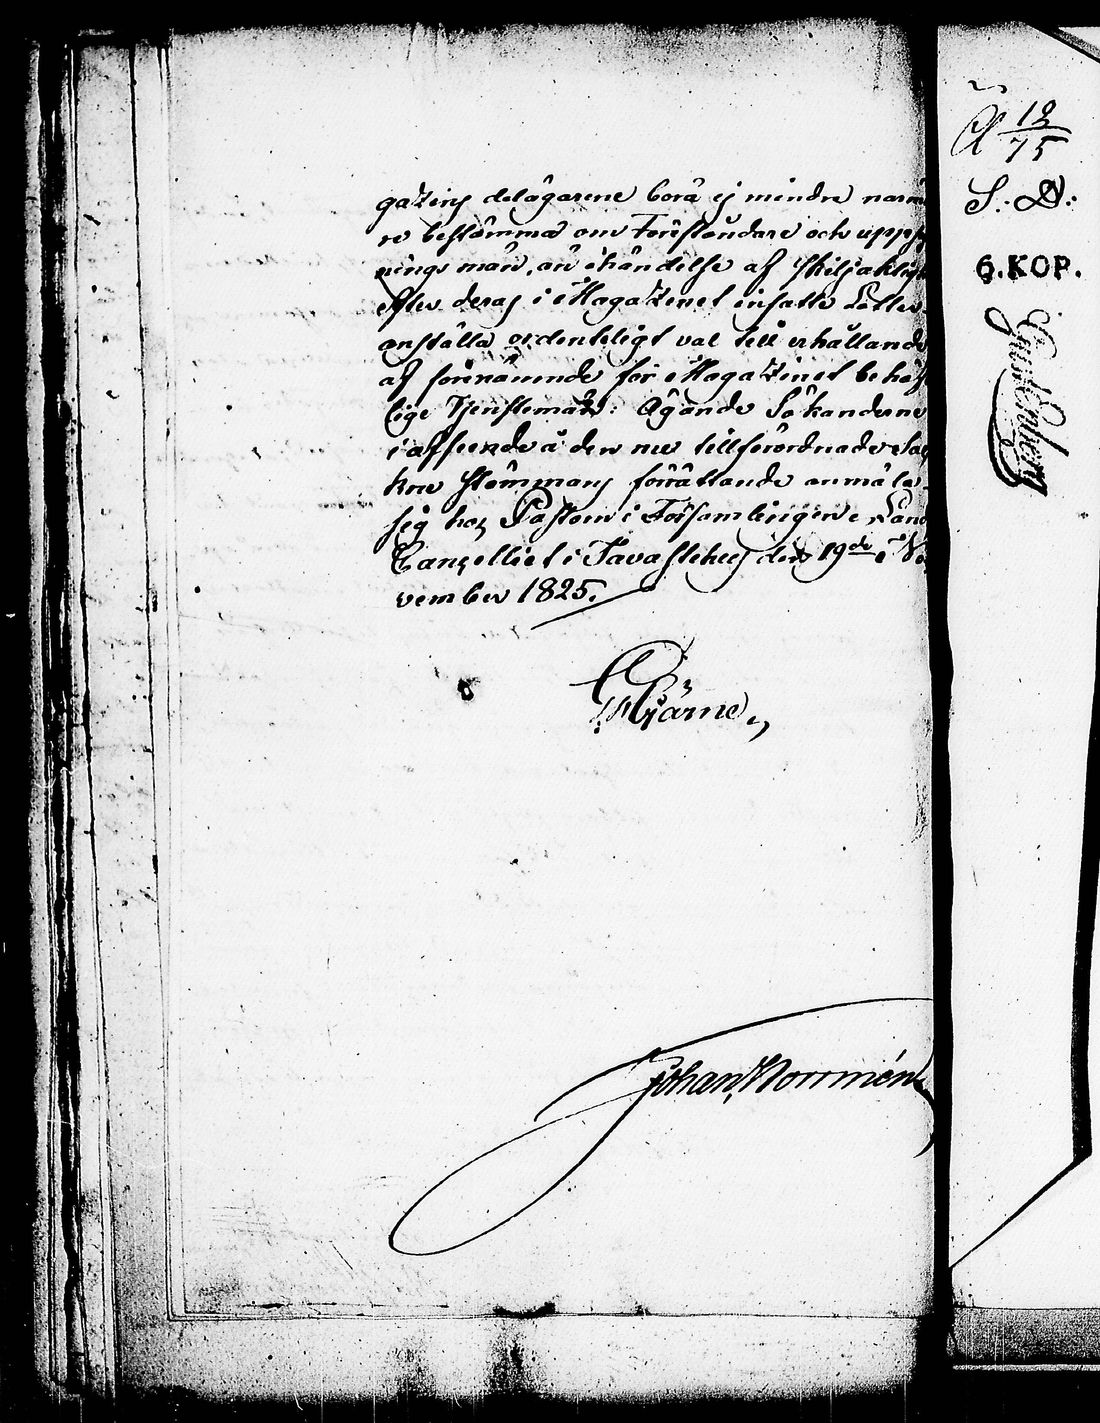 gazins delägarene böra ej mindre närma
re bestämma om Föreståndare och uppsy
nings män, än i händelse af skiljaktighet
efter deras i Magazinet insatte Lotter
anställa ordenteligt val till erhållande
af förenämnde för Magazinet behöf
lige Tjenstemän: Ägande Sökanderne
i afseende å den nu tillförordnade Soc
kne stämmans förrättande anmäla
sig hos Pastorn i Församlingen. Lands
Cancelliet i Tavastehus den 19de No
vember 1825.
Hjärne
Johan Norrmén
12
75
S. D:
6. KOP.